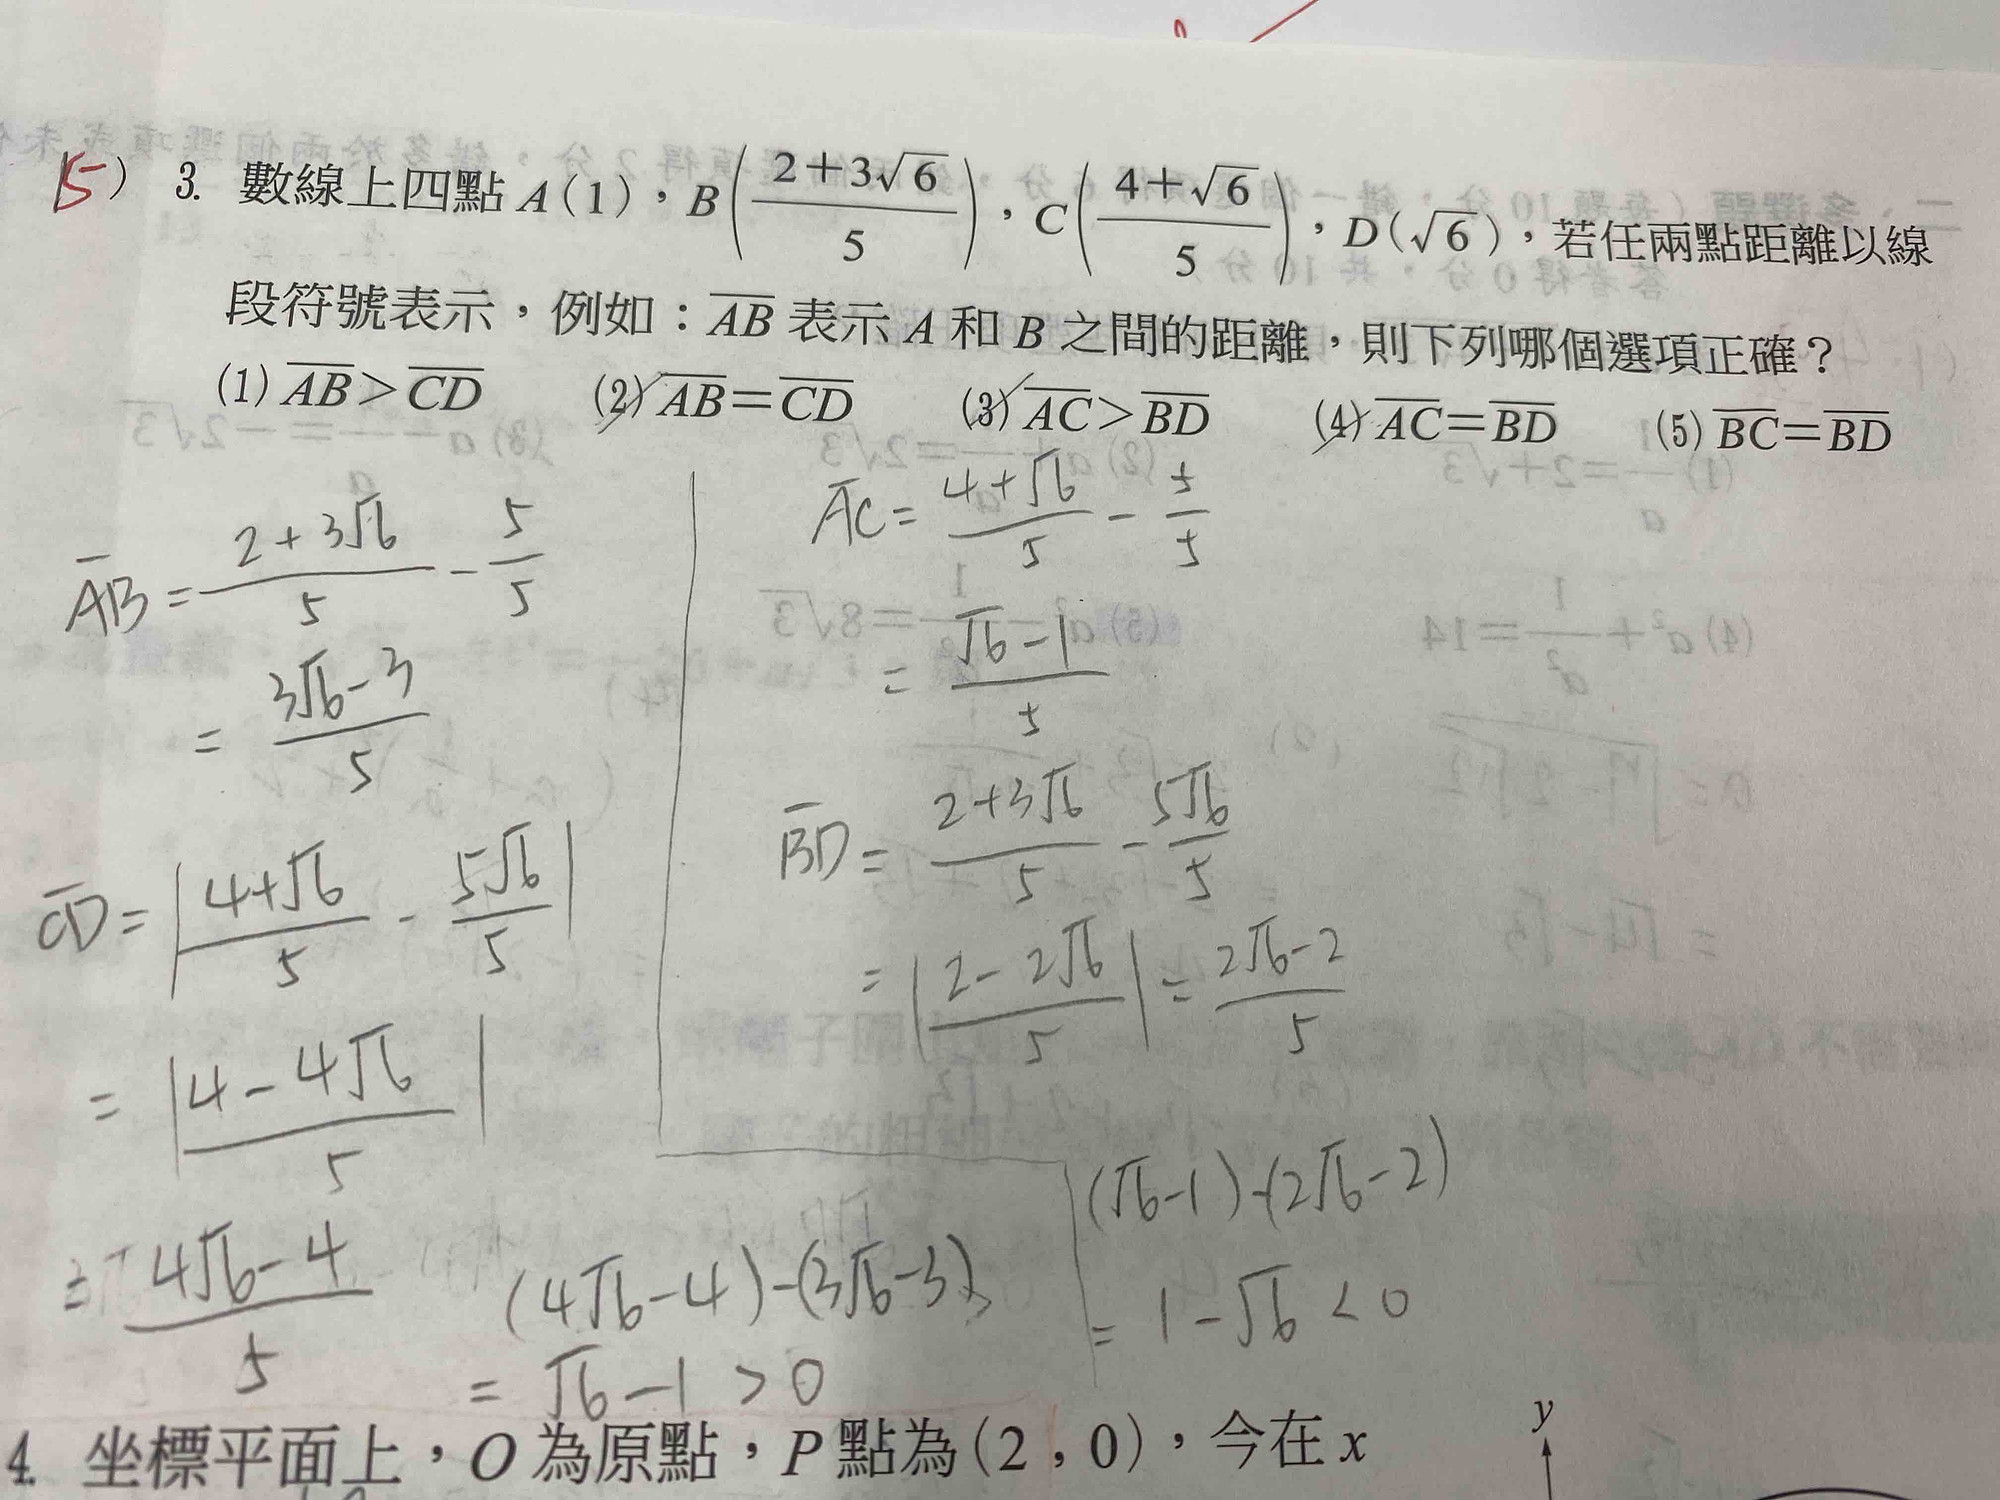 5) 3. 數線上四點 A(1),B((2+3√6)/5),C((4+√6)/5),D(√6),若任兩點距離以線
段符號表示,例如:A̅B̅ 表示 A 和 B 之間的距離,則下列哪個選項正確?
(1) A̅B̅>C̅D̅ (2) A̅B̅=C̅D̅ (3) A̅C̅>B̅D̅ (4) A̅C̅=B̅D̅ (5) B̅C̅=B̅D̅
A̅B̅ = (2+3√6)/5 - 5/5
= (3√6-3)/5
C̅D̅ = |(4+√6)/5 - 5√6/5|
= |(4-4√6)/5|
= (4√6-4)/5
(4√6-4)-(3√6-3)
= √6-1 > 0
A̅C̅ = (4+√6)/5 - 5/5
= (√6-1)/5
B̅D̅ = (2+3√6)/5 - 5√6/5
= |(2-2√6)/5| = (2√6-2)/5
(√6-1)-(2√6-2)
= 1-√6 < 0
4. 坐標平面上,O 為原點,P 點為(2,0),今在 x
y